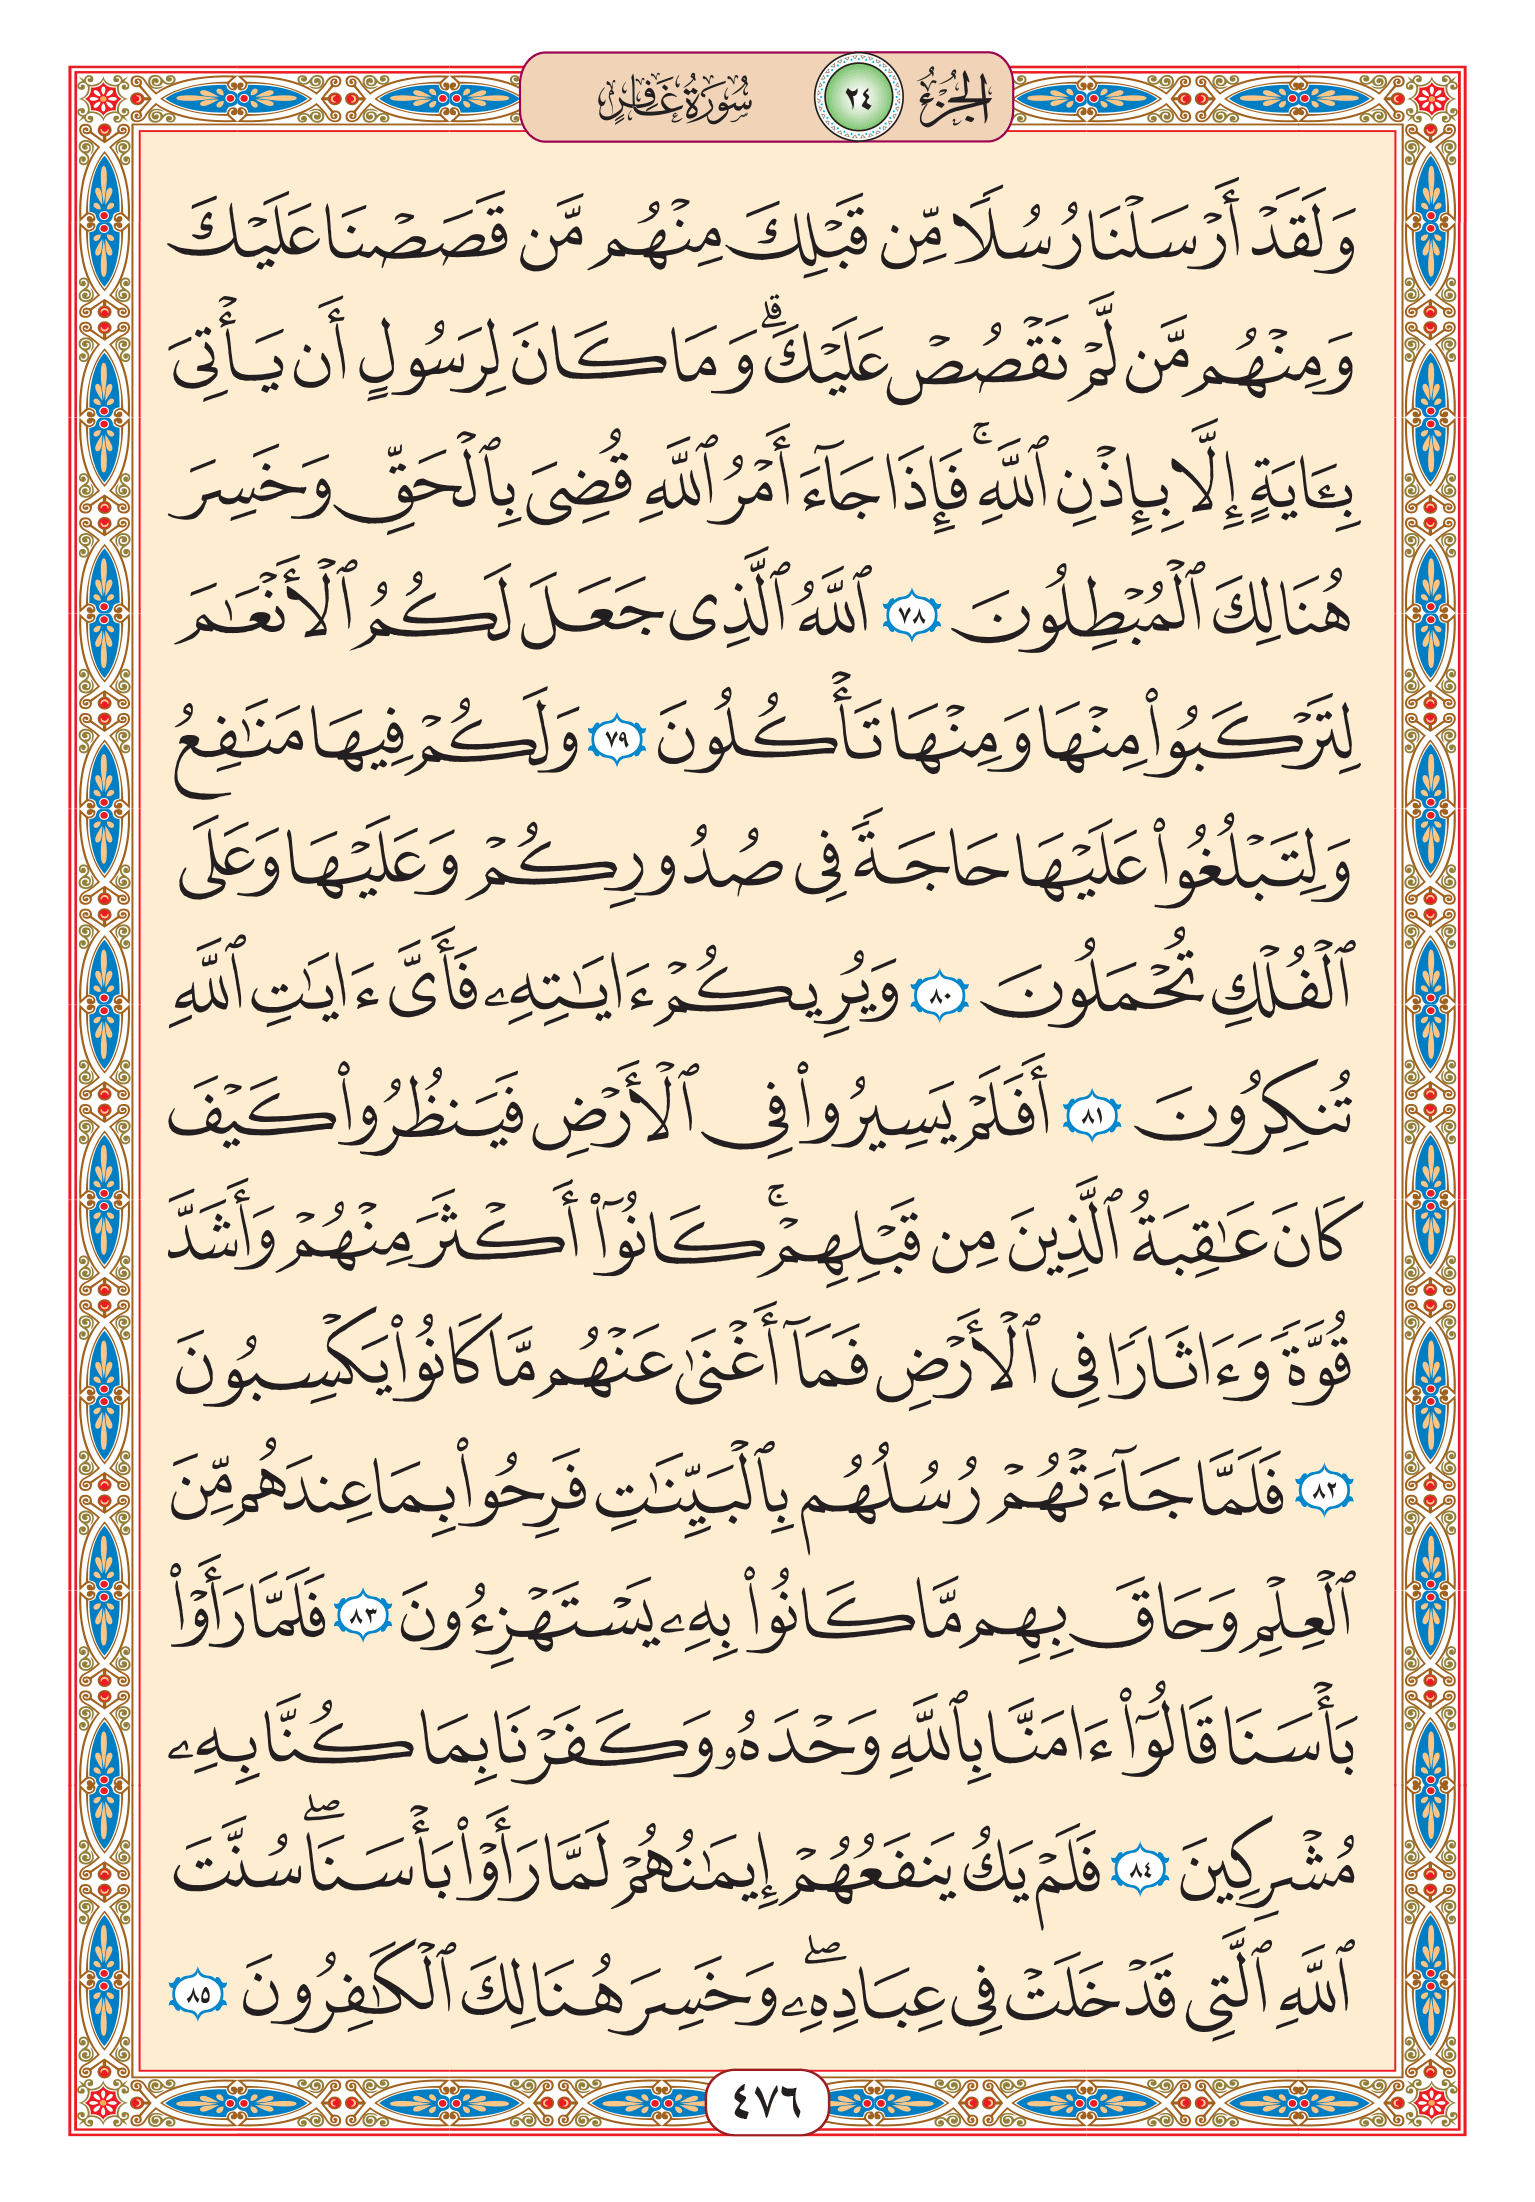 الجزء ٢٤ سورة غافر
وَلَقَدْ أَرْسَلْنَا رُسُلًا مِّن قَبْلِكَ مِنْهُم مَّن قَصَصْنَا عَلَيْكَ
وَمِنْهُم مَّن لَّمْ نَقْصُصْ عَلَيْكَ ۗ وَمَا كَانَ لِرَسُولٍ أَن يَأْتِىَ
بِـَٔايَةٍ إِلَّا بِإِذْنِ ٱللَّهِ ۚ فَإِذَا جَآءَ أَمْرُ ٱللَّهِ قُضِىَ بِٱلْحَقِّ وَخَسِرَ
هُنَالِكَ ٱلْمُبْطِلُونَ ٧٨ ٱللَّهُ ٱلَّذِى جَعَلَ لَكُمُ ٱلْأَنْعَـٰمَ
لِتَرْكَبُوا۟ مِنْهَا وَمِنْهَا تَأْكُلُونَ ٧٩ وَلَكُمْ فِيهَا مَنَـٰفِعُ
وَلِتَبْلُغُوا۟ عَلَيْهَا حَاجَةً فِى صُدُورِكُمْ وَعَلَيْهَا وَعَلَى
ٱلْفُلْكِ تُحْمَلُونَ ٨٠ وَيُرِيكُمْ ءَايَـٰتِهِۦ فَأَىَّ ءَايَـٰتِ ٱللَّهِ
تُنكِرُونَ ٨١ أَفَلَمْ يَسِيرُوا۟ فِى ٱلْأَرْضِ فَيَنظُرُوا۟ كَيْفَ
كَانَ عَـٰقِبَةُ ٱلَّذِينَ مِن قَبْلِهِمْ ۚ كَانُوٓا۟ أَكْثَرَ مِنْهُمْ وَأَشَدَّ
قُوَّةً وَءَاثَارًا فِى ٱلْأَرْضِ فَمَآ أَغْنَىٰ عَنْهُم مَّا كَانُوا۟ يَكْسِبُونَ
٨٢ فَلَمَّا جَآءَتْهُمْ رُسُلُهُم بِٱلْبَيِّنَـٰتِ فَرِحُوا۟ بِمَا عِندَهُم مِّنَ
ٱلْعِلْمِ وَحَاقَ بِهِم مَّا كَانُوا۟ بِهِۦ يَسْتَهْزِءُونَ ٨٣ فَلَمَّا رَأَوْا۟
بَأْسَنَا قَالُوٓا۟ ءَامَنَّا بِٱللَّهِ وَحْدَهُۥ وَكَفَرْنَا بِمَا كُنَّا بِهِۦ
مُشْرِكِينَ ٨٤ فَلَمْ يَكُ يَنفَعُهُمْ إِيمَـٰنُهُمْ لَمَّا رَأَوْا۟ بَأْسَنَا ۖ سُنَّتَ
ٱللَّهِ ٱلَّتِى قَدْ خَلَتْ فِى عِبَادِهِۦ ۖ وَخَسِرَ هُنَالِكَ ٱلْكَـٰفِرُونَ ٨٥
٤٧٦